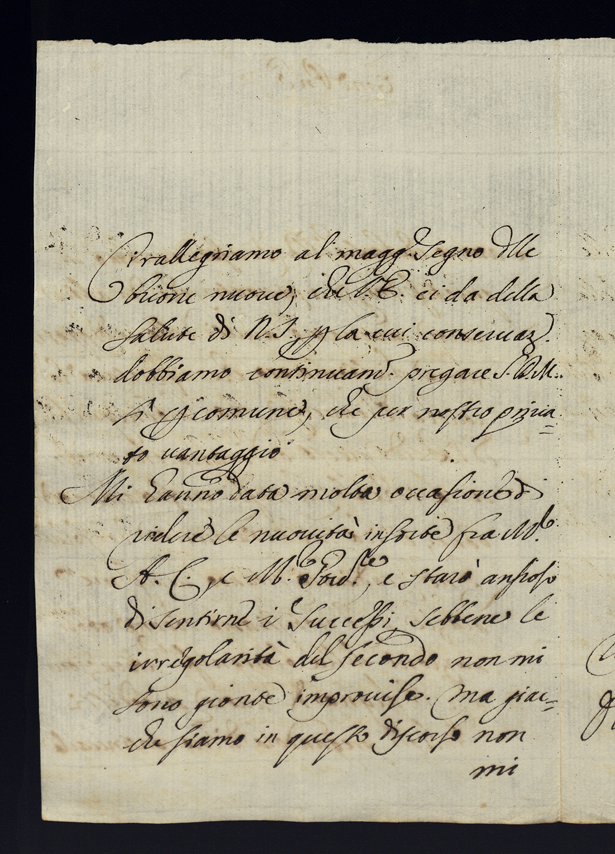 Ci rallegriamo al magg.r segno delle
buone nuove, che V.E. ci da della
salute di N.S. p la cui conservaz.e
dobbiamo continuam.e pregare S.D.M.
sì p comune, che per nostro priua=
to vantaggio
Mi hanno data molta occasione di
ridere le nuouità insorte fra M.r
A. C. e M.r, e starò ansioso
di sentirne i successi, sebbene le
irregolarità del secondo non mi
sono gionte improuise. Ma giac=
che siamo in questo discorso non
mi